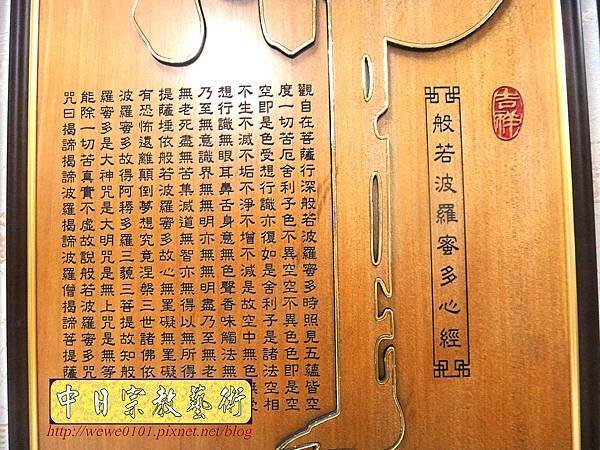 吉祥
般若波羅蜜多心經
觀自在菩薩行深般若波羅蜜多時照見五蘊皆空
度一切苦厄舍利子色不異空空不異色色即是空
空即是色受想行識亦復如是舍利子是諸法空相
不生不滅不垢不淨不增不減是故空中無色無受
想行識無眼耳鼻舌身意無色聲香味觸法無
乃至無意識界無無明亦無無明盡乃至無老
無老死盡無苦集滅道無智亦無得以無所得
提薩埵依般若波羅蜜多故心無罣礙無罣礙
有恐怖遠離顛倒夢想究竟涅槃三世諸佛依
波羅蜜多故得阿耨多羅三藐三菩提故知般
羅蜜多是大神咒是大明咒是無上咒是無等
能除一切苦真實不虛故說般若波羅蜜多咒
咒曰揭諦揭諦波羅揭諦波羅僧揭諦菩提薩
中日宗教藝術
http://wewe0101.pixnet.net/blog